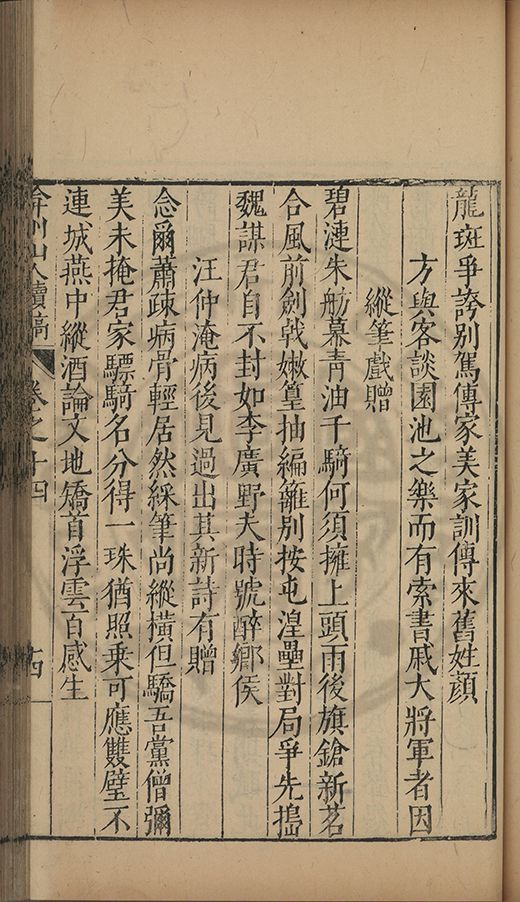 龍斑爭誇別駕傳家美家訓傳來舊姓顏
方與客談園池之樂而有索書戚大將軍者因
縱筆戲贈
碧漣朱舫幕青油千騎何須擁上頭雨後旗鎗新茗
合風前劍戟嫩篁抽編籬別按屯湟壘對局爭先擣
魏謀君自不封如李廣野夫時號醉鄉侯
汪仲淹病後見過出其新詩有贈
念爾蕭疎病骨輕居然綵筆尚縱橫但驕吾黨僧彌
美未掩君家驃騎名分得一珠猶照乘可應雙璧不
連城燕中縱酒論文地矯首浮雲百感生
弇州山人續稿 卷之十四 十四